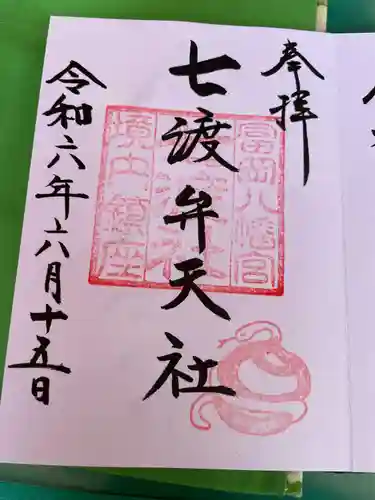 奉拝
七渡弁天社
富岡八幡宮
境内鎮座
令和六年六月十五日